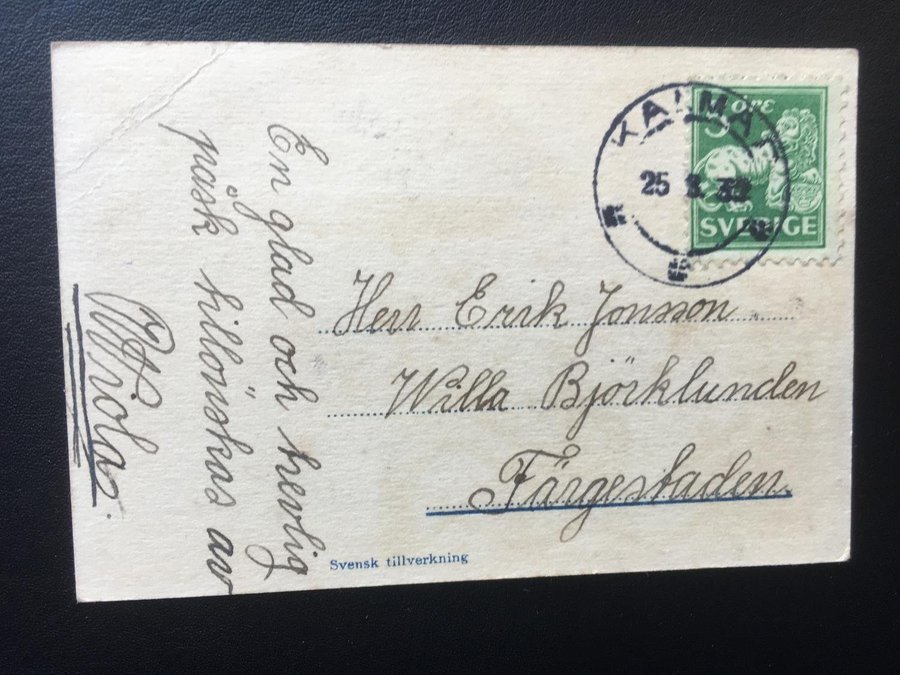 En glad och hevlig
påsk tillönskas av
Wiola
KALMAR
25 3. 32
5 ÖRE
SVERIGE
Herr Erik Jonsson
Willa Björklunden
Färgestaden.
Svensk tillverkning